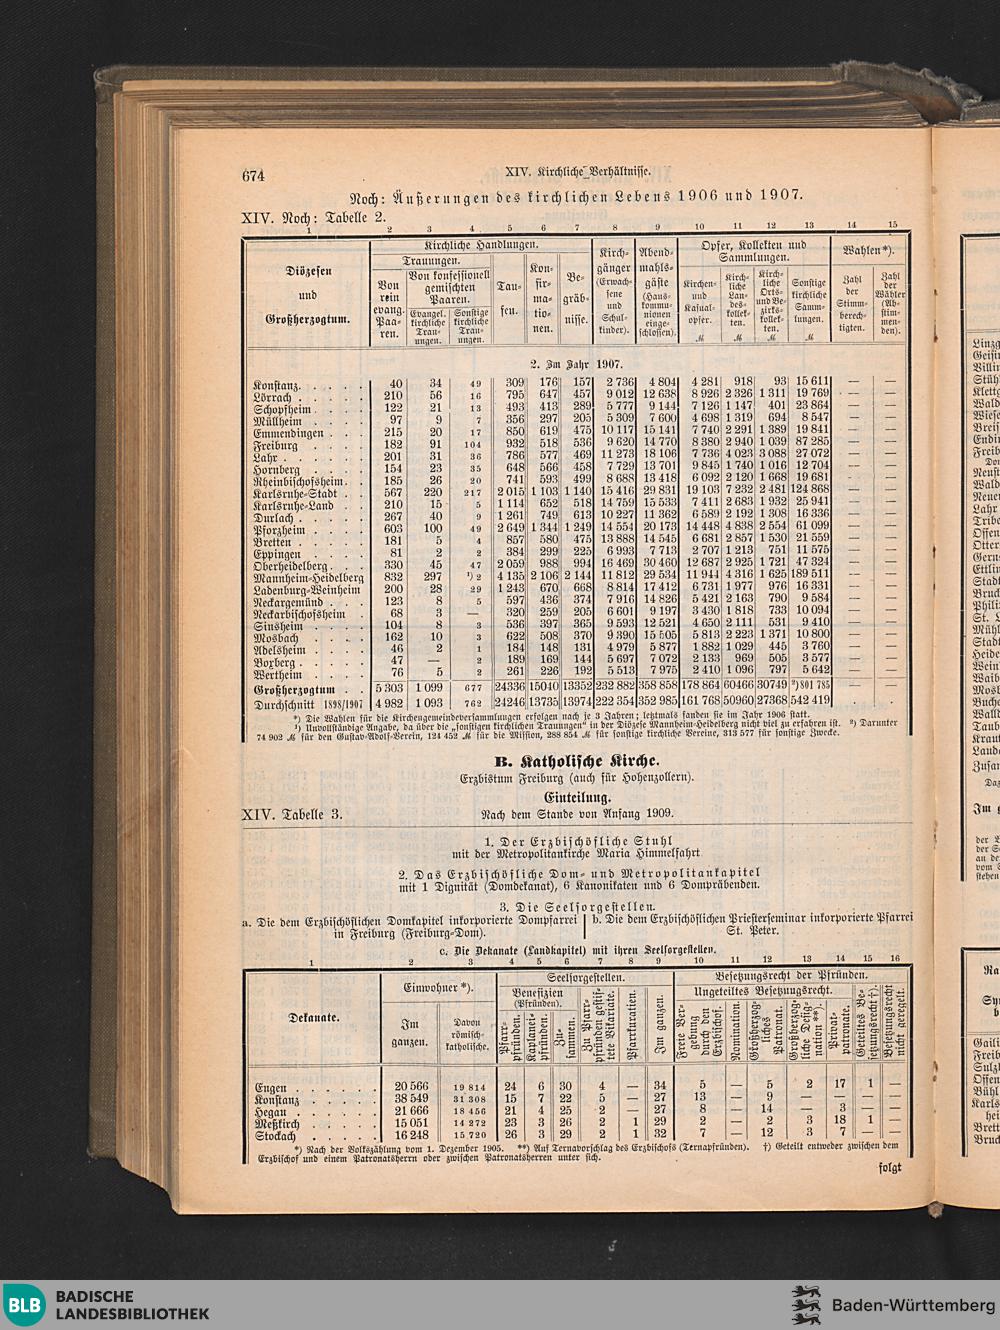 674
XIV. Kirchliche Verhältnisse.
Noch: Äußerungen des kirchlichen Lebens 1906 und 1907.
XIV. Noch: Tabelle 2.
1 2 3 4 5 6 7 8 9 10 11 12 13 14 15
Diözesen und Großherzogtum.
Kirchliche Handlungen.
Trauungen.
Von rein evang. Paaren.
Von konfessionell gemischten Paaren.
Evangel. kirchliche Trauungen.
Sonstige kirchliche Trauungen.
Taufen.
Konfirmationen.
Begräbnisse.
Kirchgänger (Erwachsene und Schulkinder).
Abendmahlsgäste (Hauskommunionen eingeschlossen).
Opfer, Kollekten und Sammlungen.
Kirchen- und Kasualopfer. ℳ
Kirchliche Landeskollekten. ℳ
Kirchliche Orts- und Bezirkskollekten. ℳ
Sonstige kirchliche Sammlungen. ℳ
Wahlen*).
Zahl der Stimmberechtigten.
Zahl der Wähler (Abstimmenden).
2. Im Jahr 1907.
Konstanz 40 34 49 309 176 157 2 736 4 804 4 281 918 93 15 611 — —
Lörrach 210 56 16 795 647 457 9 012 12 638 8 926 2 326 1 311 19 769 — —
Schopfheim 122 21 13 493 413 289 5 777 9 144 7 126 1 147 401 23 864 — —
Müllheim 97 9 7 356 297 205 5 309 7 600 4 698 1 319 694 8 547 — —
Emmendingen 215 20 17 850 619 475 10 117 15 141 7 740 2 291 1 389 19 841 — —
Freiburg 182 91 104 932 518 536 9 620 14 770 8 380 2 940 1 039 87 285 — —
Lahr 201 31 36 786 577 469 11 273 18 106 7 736 4 023 3 088 27 072 — —
Hornberg 154 23 35 648 566 458 7 729 13 701 9 845 1 740 1 016 12 704 — —
Rheinbischofsheim 185 26 20 741 593 499 8 688 13 418 6 092 2 120 1 668 19 681 — —
Karlsruhe-Stadt 567 220 217 2 015 1 103 1 140 15 416 29 831 19 103 7 232 2 481 124 868 — —
Karlsruhe-Land 210 15 5 1 114 652 518 14 759 15 533 7 411 2 683 1 932 25 941 — —
Durlach 267 40 9 1 261 749 613 10 227 11 362 6 589 2 192 1 308 16 336 — —
Pforzheim 603 100 49 2 649 1 344 1 249 14 554 20 173 14 448 4 838 2 554 61 099 — —
Bretten 181 5 4 857 580 475 13 888 14 545 6 681 2 857 1 530 21 559 — —
Eppingen 81 2 2 384 299 225 6 993 7 713 2 707 1 213 751 11 575 — —
Oberheidelberg 330 45 47 2 059 988 994 16 469 30 460 12 687 2 925 1 721 47 324 — —
Mannheim-Heidelberg 832 297 ¹) 2 4 135 2 106 2 144 11 812 29 534 11 944 4 316 1 625 189 511 — —
Ladenburg-Weinheim 200 28 29 1 243 670 668 8 814 17 412 6 731 1 977 976 16 331 — —
Neckargemünd 123 8 5 597 436 374 7 916 14 826 5 421 2 163 790 9 584 — —
Neckarbischofsheim 68 3 — 320 259 205 6 601 9 197 3 430 1 818 733 10 094 — —
Sinsheim 104 8 3 536 397 365 9 593 12 521 4 650 2 111 531 9 410 — —
Mosbach 162 10 3 622 508 370 9 390 15 505 5 813 2 223 1 371 10 800 — —
Adelsheim 46 2 1 184 148 131 4 979 5 877 1 882 1 029 445 3 760 — —
Boxberg 47 — 2 189 169 144 5 697 7 072 2 133 969 505 3 577 — —
Wertheim 76 5 2 261 226 192 5 513 7 975 2 410 1 096 797 5 642 — —
Großherzogtum 5 303 1 099 677 24336 15040 13352 232 882 358 858 178 864 60466 30749 ²)801 785
Durchschnitt 1898/1907 4 982 1 093 762 24246 13735 13974 222 354 352 985 161 768 50960 27368 542 419
*) Die Wahlen für die Kirchengemeindeversammlungen erfolgen nach je 3 Jahren; letztmals fanden sie im Jahr 1906 statt.
¹) Unvollständige Angabe, da über die „sonstigen kirchlichen Trauungen“ in der Diözese Mannheim-Heidelberg nicht viel zu erfahren ist. ²) Darunter
74 902 ℳ für den Gustav-Adolf-Verein, 124 452 ℳ für die Mission, 288 854 ℳ für sonstige kirchliche Vereine, 313 577 für sonstige Zwecke.
B. Katholische Kirche.
Erzbistum Freiburg (auch für Hohenzollern).
Einteilung.
XIV. Tabelle 3.
Nach dem Stande von Anfang 1909.
1. Der Erzbischöfliche Stuhl
mit der Metropolitankirche Maria Himmelfahrt
2. Das Erzbischöfliche Dom- und Metropolitankapitel
mit 1 Dignität (Domdekanat), 6 Kanonikaten und 6 Dompräbenden.
3. Die Seelsorgestellen.
a. Die dem Erzbischöflichen Domkapitel inkorporierte Dompfarrei
in Freiburg (Freiburg-Dom).
b. Die dem Erzbischöflichen Priesterseminar inkorporierte Pfarrei
St. Peter.
c. Die Dekanate (Landkapitel) mit ihren Seelsorgestellen.
1 2 3 4 5 6 7 8 9 10 11 12 13 14 15 16
Dekanate.
Einwohner *).
Im ganzen.
Davon römisch-katholische.
Seelsorgestellen.
Benefizien (Pfründen).
Pfarrpfründen.
Kaplaneipfründen.
Zusammen.
Zu Pfarrpfründen gestiftete Vikariate.
Pfarrkuratien.
Im ganzen.
Besetzungsrecht der Pfründen.
Ungeteiltes Besetzungsrecht.
Freie Vergebung durch den Erzbischof.
Nomination.
Großherzogliches Patronat.
Großherzogliche Designation **).
Privatpatronate.
Geteiltes Besetzungsrecht †).
Besetzungsrecht nicht geregelt.
Engen 20 566 19 814 24 6 30 4 — 34 5 — 5 2 17 1 —
Konstanz 38 549 31 308 15 7 22 5 — 27 13 — 9 — — — —
Hegau 21 666 18 456 21 4 25 2 — 27 8 — 14 — 3 — —
Meßkirch 15 051 14 272 23 3 26 2 1 29 2 — 2 3 18 1 —
Stockach 16 248 15 720 26 3 29 2 1 32 7 — 12 3 7 — —
*) Nach der Volkszählung vom 1. Dezember 1905. **) Auf Ternavorschlag des Erzbischofs (Ternapfründen). †) Geteilt entweder zwischen dem
Erzbischof und einem Patronatsherrn oder zwischen Patronatsherren unter sich.
folgt
BLB BADISCHE
LANDESBIBLIOTHEK
Baden-Württemberg